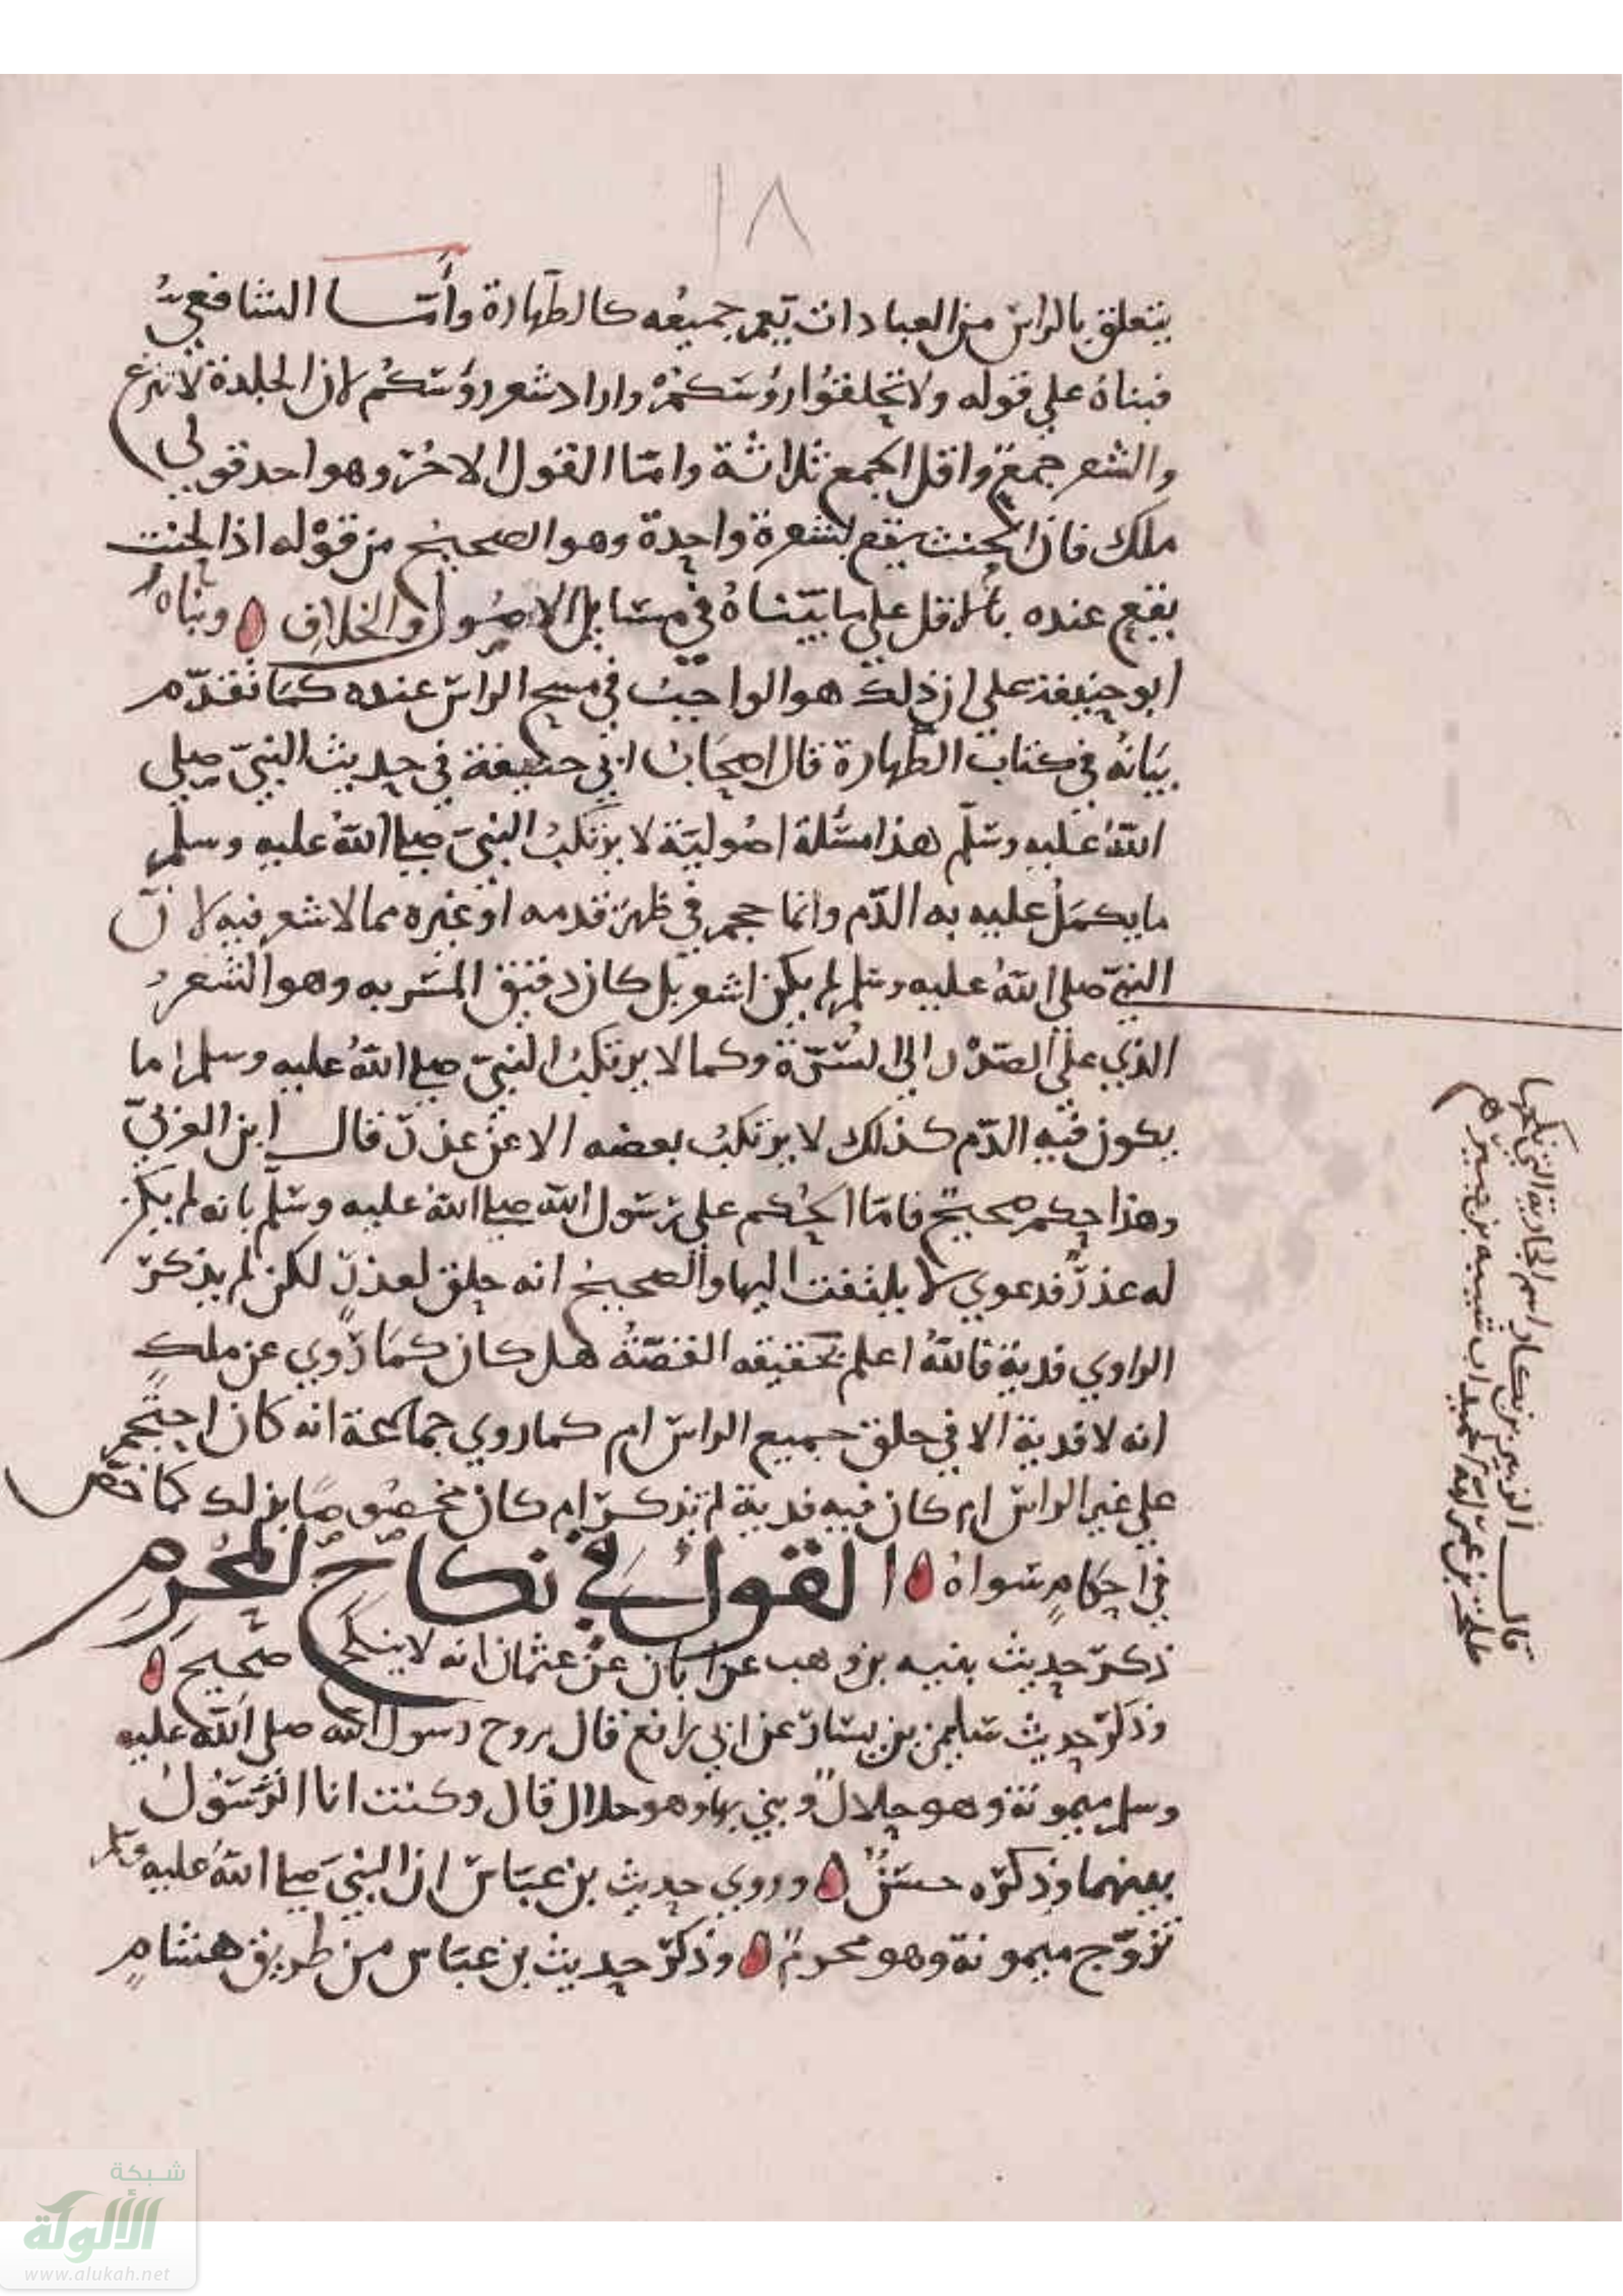 ١٨
يتعلق بالراس من العبادات يعم جميعه كالطهارة وأما الشافعي
فبناه على قوله ولا تحلقوا رؤسكم واراد شعر رؤسكم لان الجلدة لا تنزع
والشعر جمع واقل الجمع ثلاثة واما القول الاخر وهو احد قولي
ملك فان الحنث يقع بشعرة واحدة وهو الصحيح من قوله اذ الحنث
يقع عنده بالاقل على ما بيناه في مسايل الاصول والخلاف وبناه
ابو حنيفة على ان ذلك هو الواجب في مسح الراس عنده كما تقدم
بيانه في كتاب الطهارة قال اصحاب ابي حنيفة في حديث النبي صلى
الله عليه وسلم هذا مسئلة اصولية لا يرتكب النبي صلى الله عليه وسلم
ما يكمل عليه به الدم وانما حجم في ظهر قدمه او غيره مما لا شعر فيه لان
النبي صلى الله عليه وسلم لم يكن اشعر بل كان دقيق المسربه وهو الشعر
الذي على الصدر الى السرة وكما لا يرتكب النبي صلى الله عليه وسلم ما
يكون فيه الدم كذلك لا يرتكب بعضه الا عن عذر قال ابن العربي
وهذا حكم صحيح فاما الحكم على رسول الله صلى الله عليه وسلم بانه لم يكن
له عذر فدعوي لا يلتفت اليها والصحيح انه حلق لعذر لكن لم يذكر
الراوي فدية فالله اعلم بحقيقه القصة هل كان كما روي عن ملك
انه لا فدية الا في حلق جميع الراس ام كما روي جماعة انه كان احتجم
على غير الراس ام كان فيه فدية لم تذكر ام كان مخصوصا بذلك كما خص
في احكام سواه القول في نكاح المحرم
ذكر حديث بنيه بن وهب عن ابان عن عثمان انه لا ينكح صحيح
وذكر حديث سليمن بن يسار عن ابي رافع قال تزوج رسول الله صلى الله عليه
وسلم ميمونة وهو حلال وبني بها وهو حلال قال وكنت انا الرسول
بينهما وذكره حسن وروي حديث بن عباس ان النبي صلى الله عليه وسلم
تزوج ميمونة وهو محرم وذكر حديث بن عباس من طريق هشام
قال الزبير بن بكار اسم الجارية التي نكحها
طلحة بن عمر امة الحميد ابنة شيبه بن جبير
شبكة
الألوكة
www.alukah.net